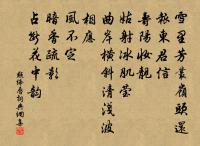 雪里芳叢嶺頭還
報東君信
壽陽妝靚
姑射冰肌瑩
曲岸橫斜清淺波
相應
風不定
暗香疏影
占斷花中韻